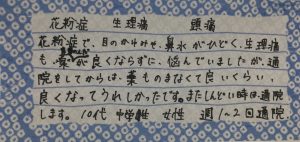 花粉症 生理痛 頭痛
花粉症で、目のかゆみ、鼻水がひどく、生理痛
も、薬が良くならずに、悩んでいましたが、通
院をしてからは、薬ものまなくて良いくらい、
良くなってうれしかったです。またしんどい時は通院
します。10代 中学生 女性 週1〜2回通院